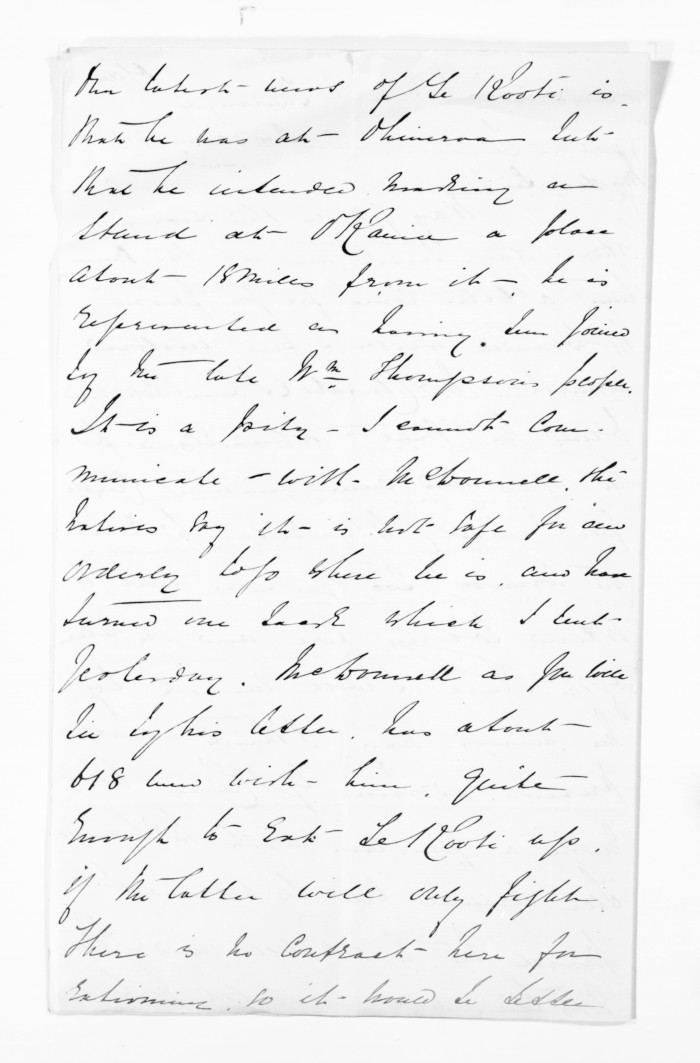 Our latest news of Te Kooti is
that he was at Ohineroa but
that he intended making a
stand at a place
about 18 miles from it - he is
represented as having been joined
by the late Wm Thompson's people.
It is a pity - I cannot com-
municate - with McDonnell, the
natives say it - is not safe for an
orderly to go where he is, and have
turned one back which I sent
yesterday. McDonnell as you will
see by his letter, has about
618 men with him, quite
enough to eat Te Kooti up,
if the latter will only fight.
There is no contract here for
rationing, so it would be better